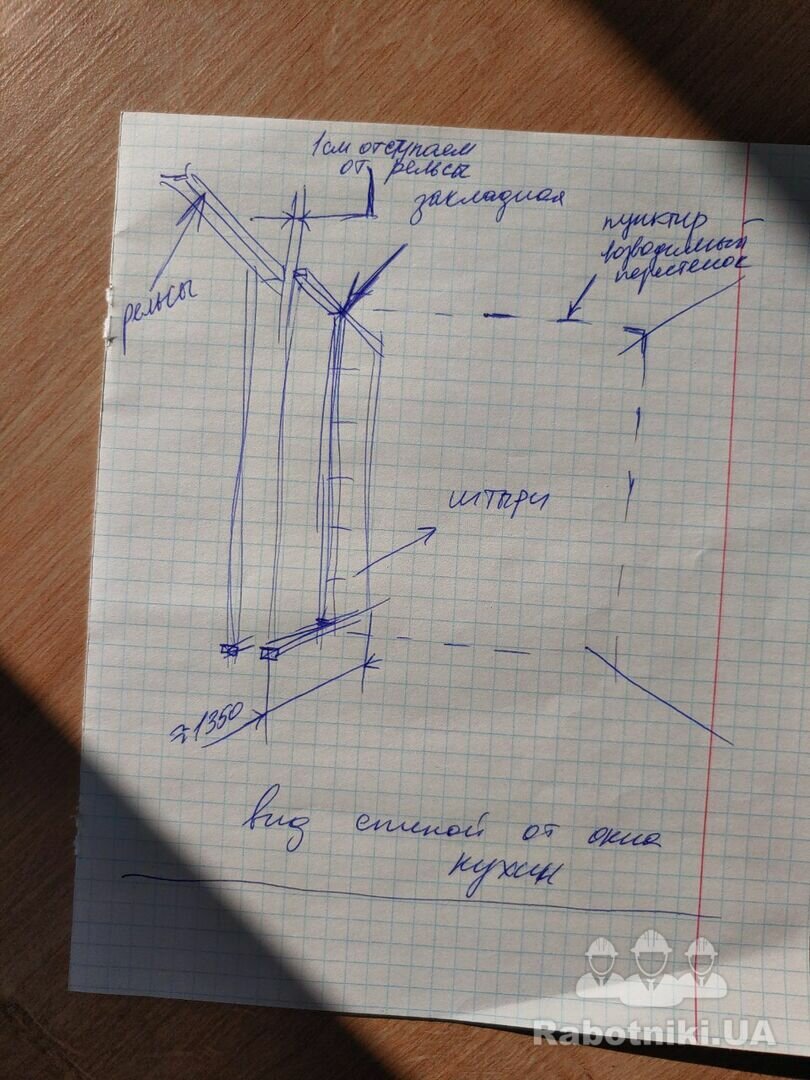 1см отступаем
от рельсы
закладная
пунктир
возводимый
перестенок
рельсы
штыри
≈1350
вид спиной от окна
кухни
Rabotniki.UA